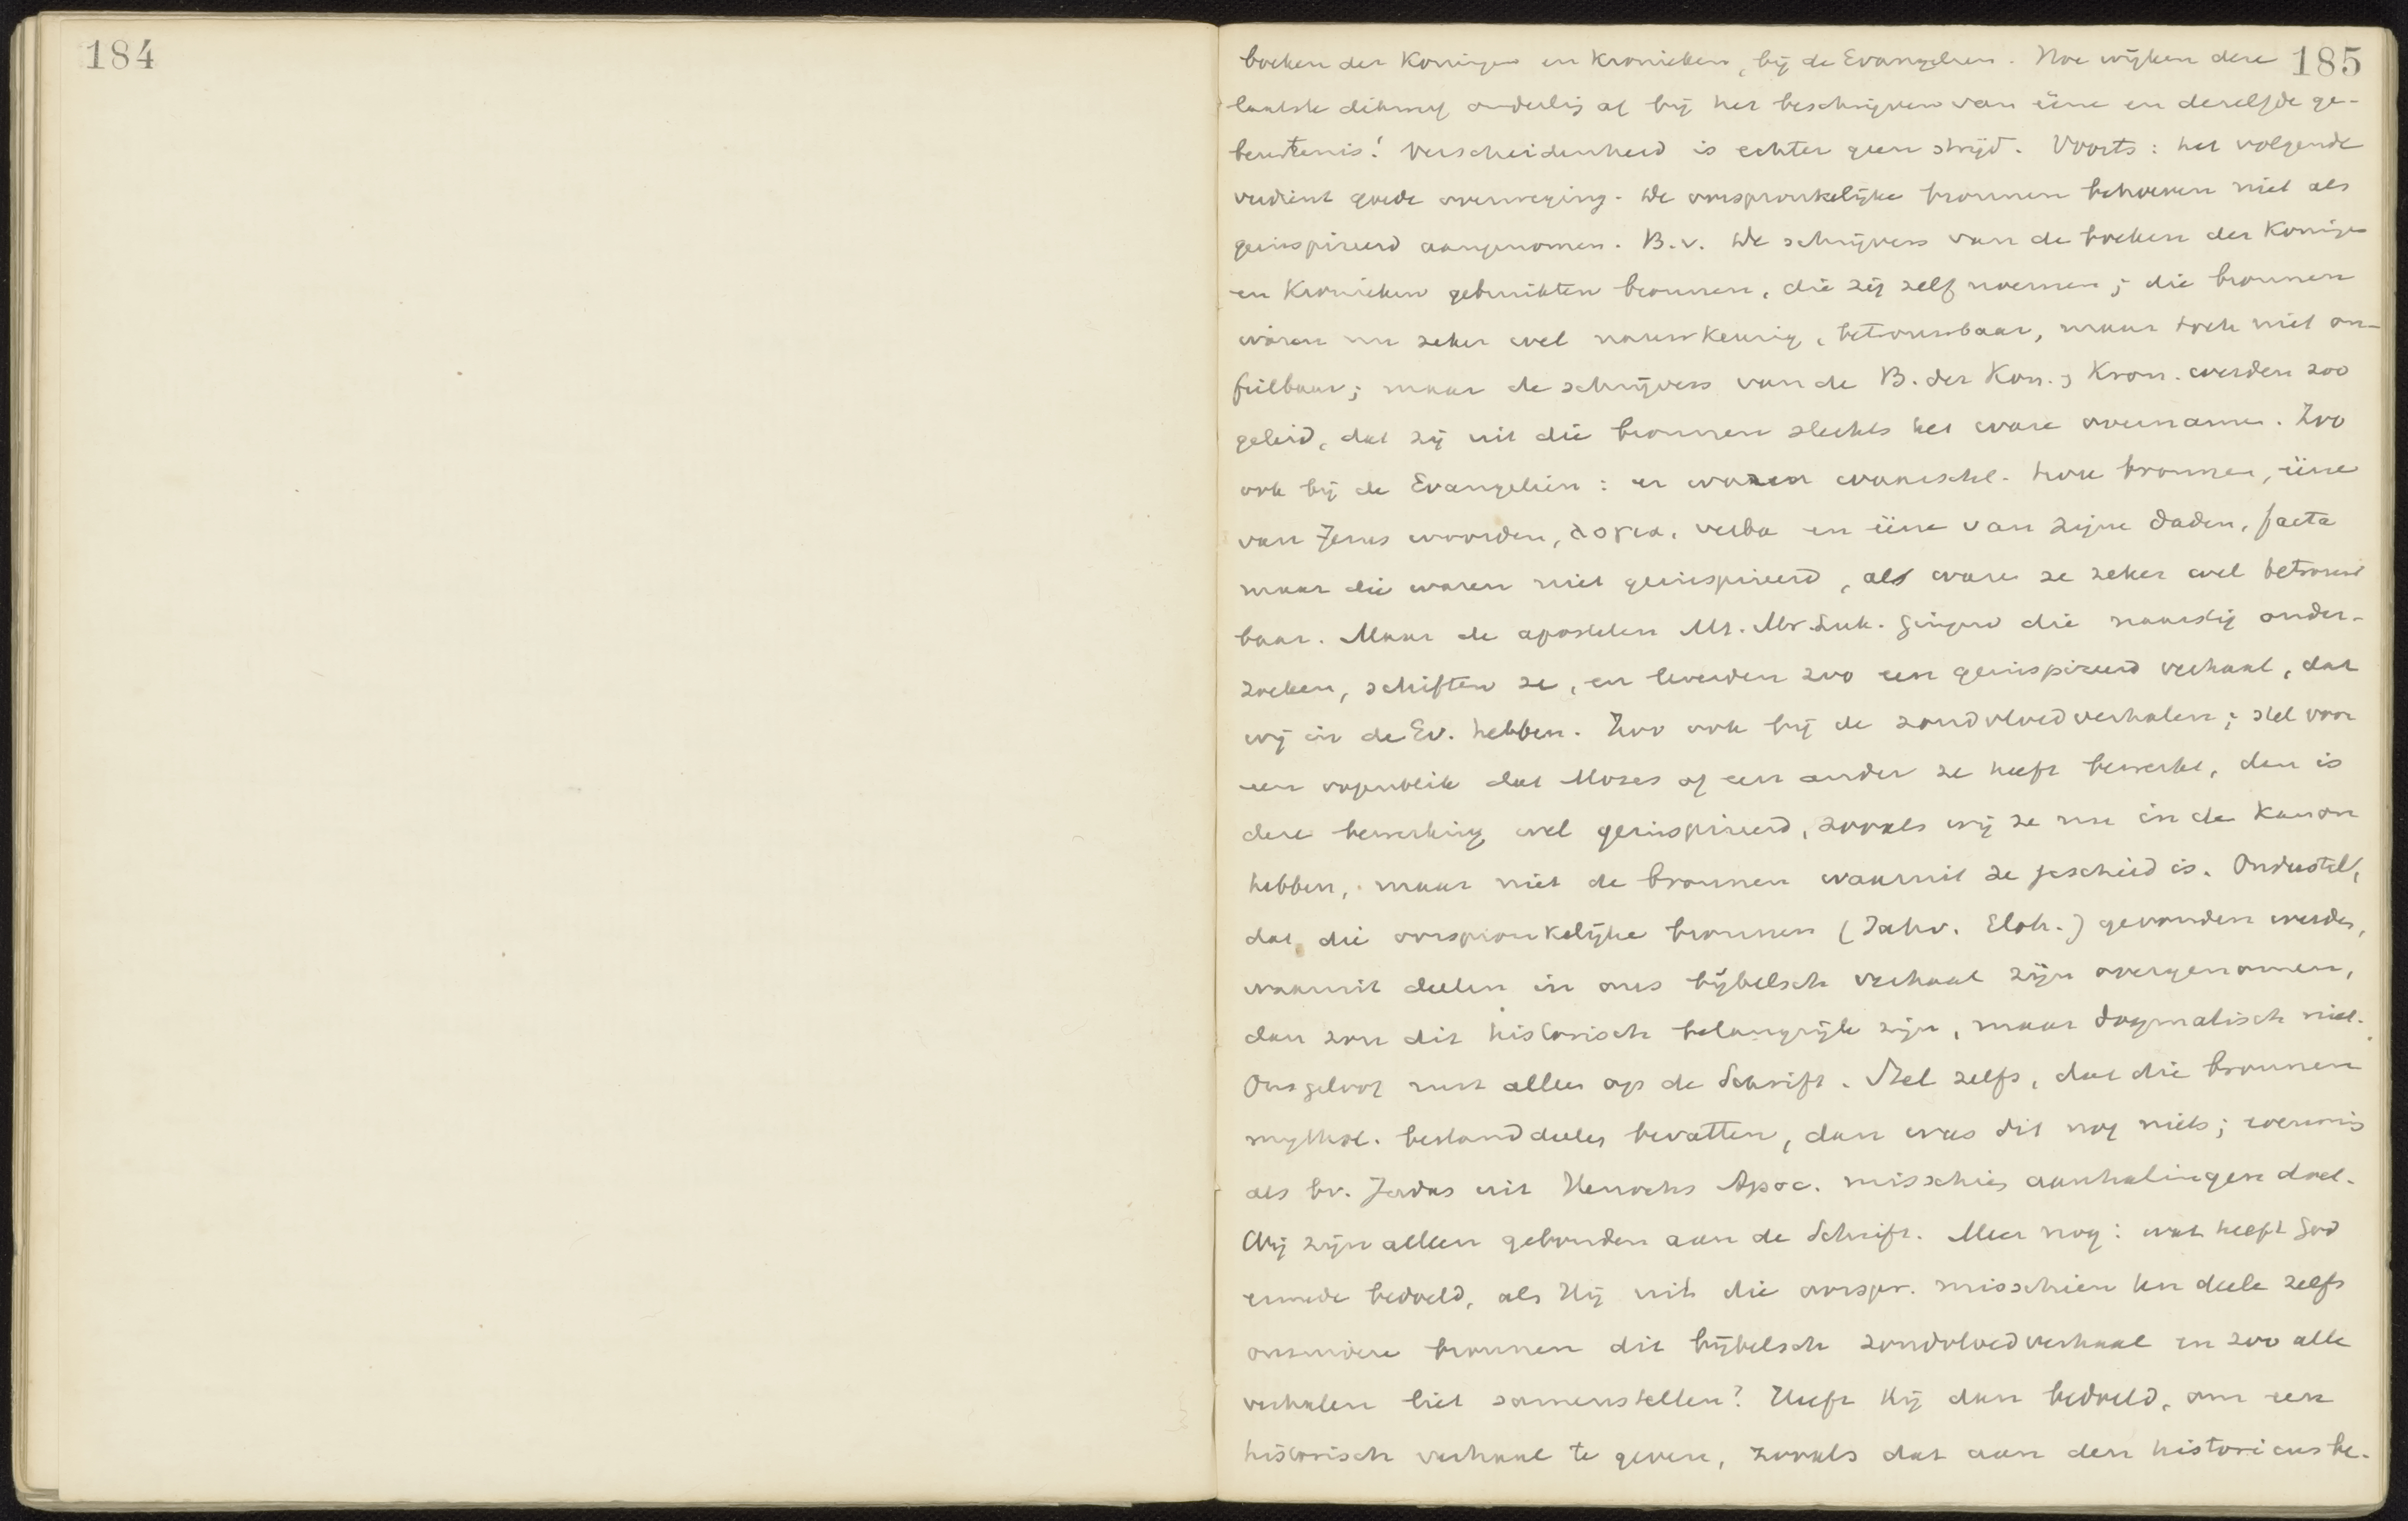 184
185
boeken der Koningen en Kronieken, bij de Evangeliën. Hoe wijken deze
laatste dikwijls onderling af bij het beschrijven van ééne en dezelfde ge-
beurtenis! Verscheidenheid is echter geen strijd. Voorts: het volgende
verdient goede overweging. De oorspronkelijke bronnen behoeven niet als
geinspireerd aangenomen. B.v. De schrijvers van de boeken der Koningen
en Kronieken gebruikten bronnen, die zij zelf noemen; die bronnen
waren nu zeker wel nauwkeurig, betrouwbaar, maar toch niet on-
feilbaar; maar de schrijvers van de B. der Kon. & Kron. werden zoo
geleid, dat zij uit die bronnen slechts het ware overnamen. Zoo
ook bij de Evangeliën: er waren waarschl. twee bronnen, ééne
van Jezus woorden, λογια, verba en ééne van zijne daden, facta
maar die waren niet geinspireerd, al ware ze zeker wel betrouw
baar. Maar de apostelen Mt. Mr. Luk. gingen die naarstig onder-
zoeken, schiften ze, en leverden zoo een geinspireerd verhaal, dat
wij in de Ev. hebben. Zoo ook bij de zondvloedverhalen; stel voor
een oogenblik dat Mozes of een ander ze heeft bewerkt, dan is
deze bewerking wel geinspireerd, zooals wij ze nu in de Kanon
hebben, maar niet de bronnen waaruit ze geschied is. Ondersteld,
dat die oorspronkelijke bronnen (Jahv. Eloh.) gevonden werden,
waaruit deelen in ons bijbelsch verhaal zijn overgenomen,
dan zou dit historisch belangrijk zijn, maar dogmatisch niet.
Ons geloof rust alleen op de Schrift. Stel zelfs, dat die bronnen
mythol. bestanddeelen bevatten, dan was dit nog niets; evenmin
als bv. Judas uit Henochs Apoc. misschien aanhalingen doet.
Wij zijn alleen gebonden aan de Schrift. Meer nog: wat heeft God
ermede bedoeld, als Hij uit die oorspr. misschien ten deele zelfs
onzuivere bronnen dit bijbelsch zondvloedverhaal en zoo alle
verhalen liet samenstellen? Heeft Hij dan bedoeld, om een
historisch verhaal te geven, zooals dat aan den historicus be-